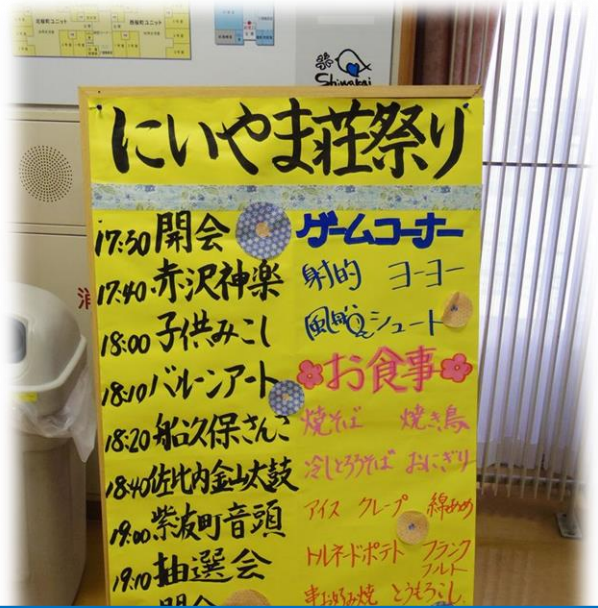 Shiwakai
にいやま荘祭り
17:30 開会
17:40 赤沢神楽
18:00 子供みこし
18:10 バルーンアート
18:20 船久保さんさ
18:40 佐比内金山太鼓
19:00 紫友町音頭
19:10 抽選会
閉会
ゲームコーナー
射的 ヨーヨー
風船シュート
お食事
焼そば 焼き鳥
冷しとろろそば おにぎり
アイス クレープ 綿あめ
トルネードポテト フランクフルト
串お好み焼 とうもろこし
消